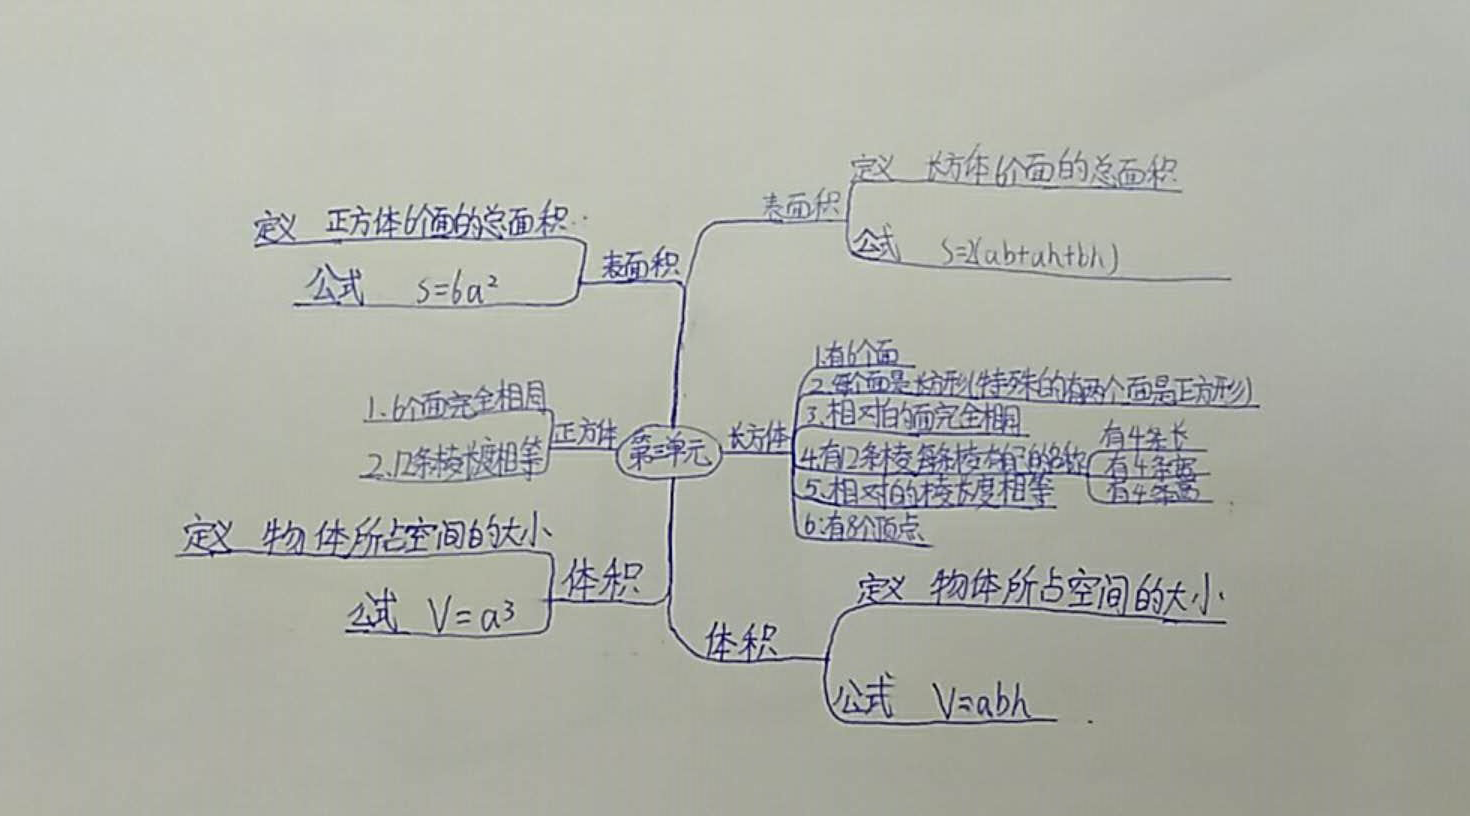 定义 正方体6个面的总面积
公式 S=6a²
表面积
1.6个面完全相同
2.12条棱长度相等
正方体
定义 物体所占空间的大小
公式 V=a³
体积
第三单元
表面积
定义 长方体6个面的总面积
公式 S=2(ab+ah+bh)
长方体
1.有6个面
2.每个面是长方形(特殊的有两个面是正方形)
3.相对的面完全相同
4.有12条棱每条棱有自己的名称
有4条长
有4条宽
有4条高
5.相对的棱长度相等
6.有8个顶点
体积
定义 物体所占空间的大小
公式 V=abh